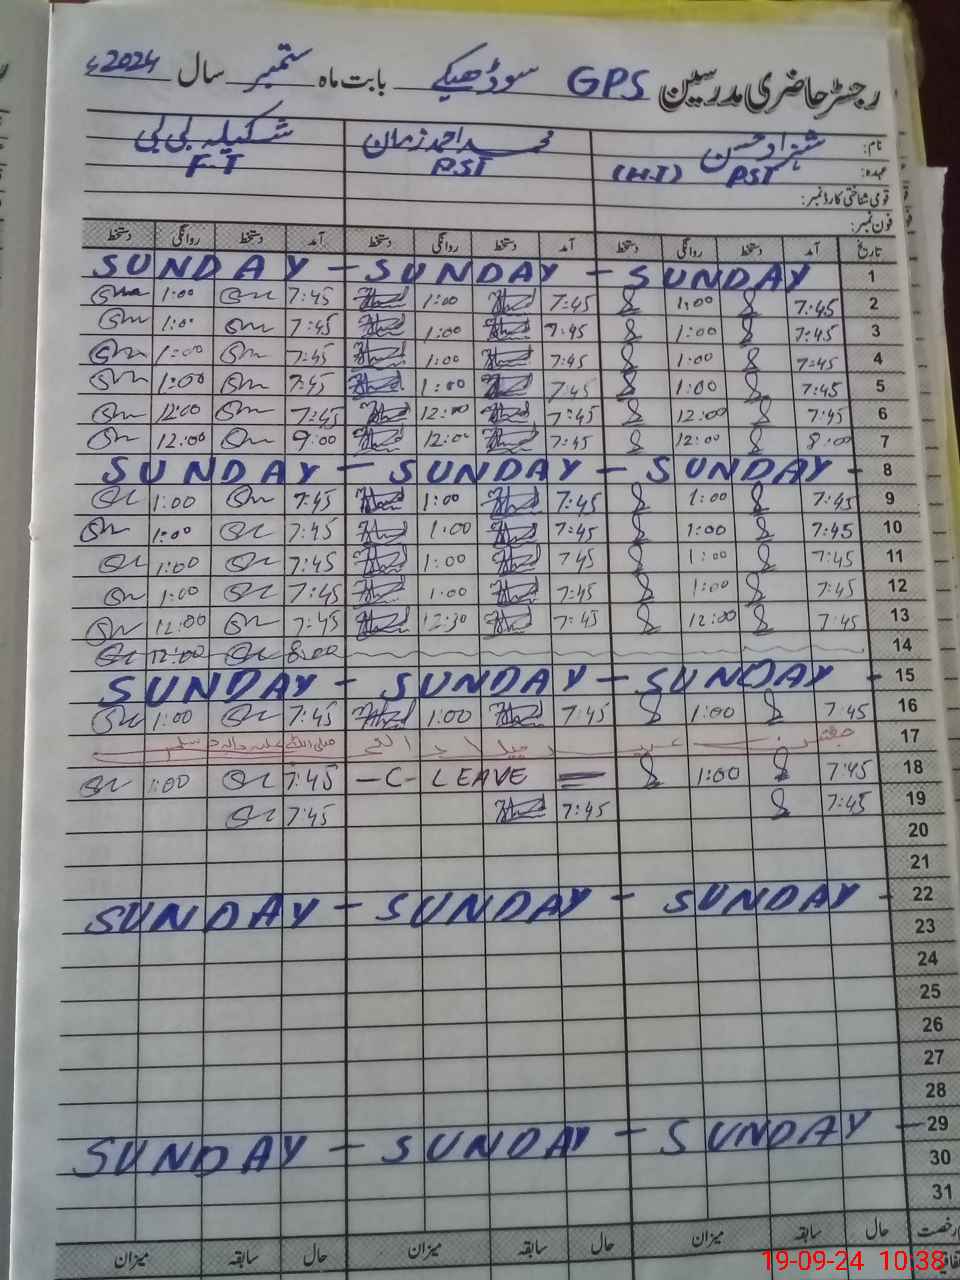 رجسٹر حاضری مدرسین GPS سوڈھیکے بابت ماہ ستمبر سال 2024ء
نام: شہزاد حسن محمد احمد زمان شکیلہ بی بی
عہدہ: PST (H.T) P.ST F-T
قومی شناختی کارڈ نمبر:
فون نمبر:
تاریخ آمد دستخط روانگی دستخط آمد دستخط روانگی دستخط آمد دستخط روانگی دستخط
1 SUNDAY - SUNDAY - SUNDAY
2 7:45 1:00 7:45 1:00 7:45 1:00
3 7:45 1:00 7:45 1:00 7:45 1:00
4 7:45 1:00 7:45 1:00 7:45 1:00
5 7:45 1:00 7:45 1:00 7:45 1:00
6 7:45 12:00 7:45 12:00 7:45 12:00
7 8:00 12:00 7:45 12:00 9:00 12:00
8 SUNDAY - SUNDAY - SUNDAY -
9 7:45 1:00 7:45 1:00 7:45 1:00
10 7:45 1:00 7:45 1:00 7:45 1:00
11 7:45 1:00 7:45 1:00 7:45 1:00
12 7:45 1:00 7:45 1:00 7:45 1:00
13 7:45 12:00 7:45 12:30 7:45 12:00
14 8:00 12:00
15 SUNDAY - SUNDAY - SUNDAY -
16 7:45 1:00 7:45 1:00 7:45 1:00
17 عید میلاد النبی صلی اللہ علیہ وآلہ وسلم
18 7:45 1:00 -C- LEAVE = 7:45 1:00
19 7:45 7:45 7:45
20
21
22 SUNDAY - SUNDAY - SUNDAY -
23
24
25
26
27
28
29 SUNDAY - SUNDAY - SUNDAY -
30
31
رخصت حال سابقہ میزان حال سابقہ میزان حال سابقہ میزان
19-09-24 10:38